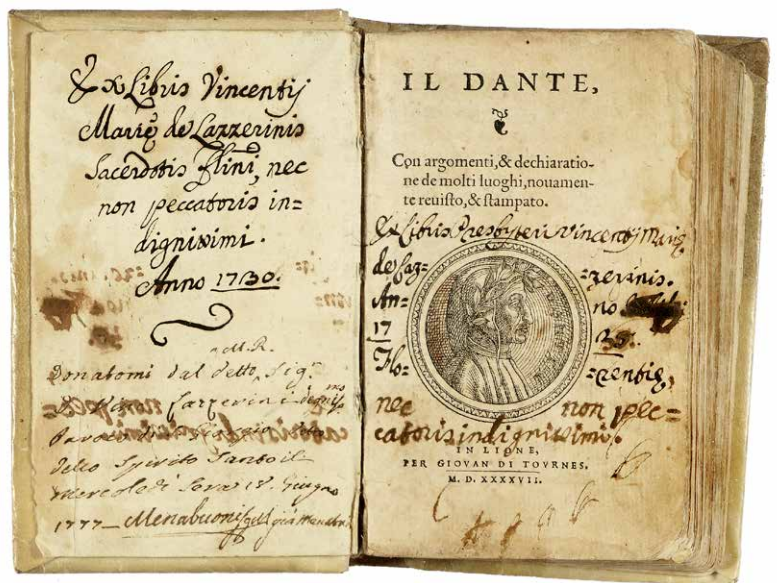 Ex Libris Vincentij
Marię de Lazzerinis
Sacerdotis Flini, nec
non peccatoris in=
dignissimi.
Anno 1730.
M. R.
Donatomi dal detto Sig.
Lazzerini
dello Spirito Santo il
Mercoledi Sera 18. Giugno
1777 — Menabuoni
IL DANTE,
Con argomenti, & dechiaratio-
ne de molti luoghi, nouamen-
te reuisto, & stampato.
Ex Libris Presbyteri Vincentij Marię
de Laz= =zerinis.
An= no
17 35.
Flo= =rentię,
nec non pec=
catoris indignissimi.
IN LIONE,
PER GIOVAN DI TOVRNES.
M. D. XXXXVII.